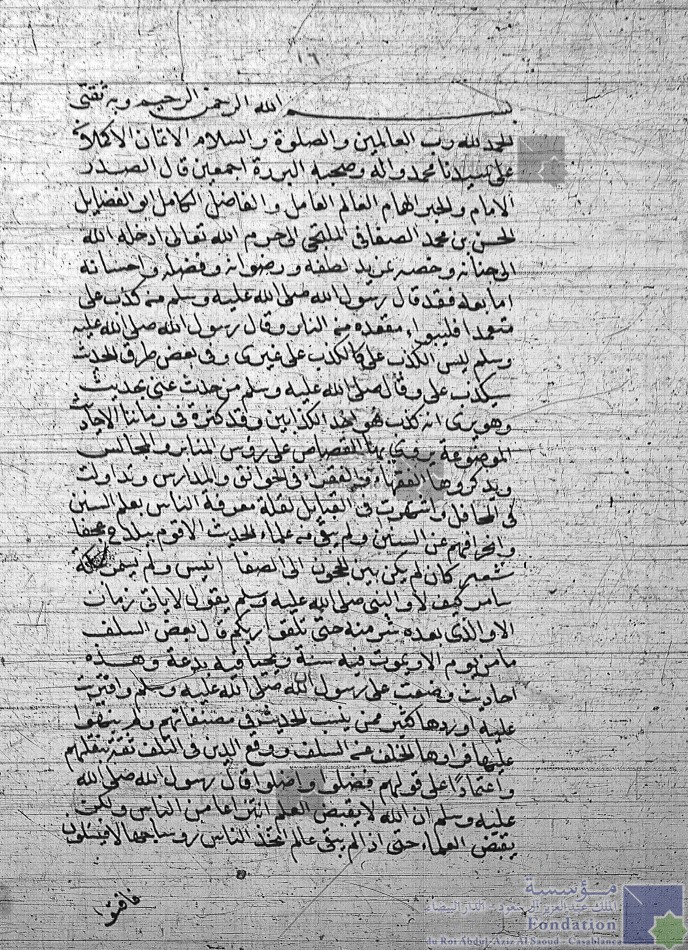 ١٦
بسم الله الرحمن الرحيم وبه ثقتي
الحمد لله رب العالمين والصلوة والسلام الاتمان الاكملان
على سيدنا محمد واله وصحبه البررة اجمعين قال الصدر
الامام والحبر الهمام العالم العامل والفاضل الكامل ابو الفضايل
الحسن بن محمد الصغاني الملتجي الى حرم الله تعالى ادخله الله
الى جنانه وخصه بمزيد لطفه ورضوانه وفضله واحسانه
اما بعد فقد قال رسول الله صلى الله عليه وسلم من كذب على
متعمدا فليبواء مقعده من النار وقال رسول الله صلى الله عليه
وسلم ليس الكذب علي كالكذب على غيري وفي بعض طرق الحديث
سيكذب على وقال صلى الله عليه وسلم من حدث عني بحديث
وهو يرى انه كذب فهو احد الكذابين وقد كثرة في زماننا الاحاديث
الموضوعة يروي بها القصاص على رؤس المنابر والمجالس
ويذكروها الفقهاء والفقراء في الخوانق والمدارس وتداولت
في المحافل واشتهرت في القبايل لقلة معرفة الناس بعلم السنن
وانحرافهم عن السنن ولم يبق من علماء الحديث الا قوم ببلدح عجفا
شعر كان لم يكن بين الحجون الى الصفا انيس ولم يسمر بمكة
سامر كيف لا والنبي صلى الله عليه وسلم يقول لا ياتي زمان
الا والذي بعده شر منه حتى تلقوا ربكم قال بعض السلف
ما من يوم الا ويموت فيه سنة ويحيا فيه بدعة وهذه
احاديث وضعت على رسول الله صلى الله عليه وسلم وافتريت
عليه اوردها كثير ممن ينسب الحديث في مصنفاتهم ولم ينبهوا
عليها فرواها الخلف عن السلف ووقع الدين في التلف ثقة بنقلهم
واعتمادا على قولهم فضلوا واضلوا قال رسول الله صلى الله
عليه وسلم ان الله لا يقبض العلم انتزاعا من الناس ولكن
يقبض العلماء حتى اذا لم يبق عالم اتخذ الناس روساء جهالا فيسئلون
فافتوا
مؤسسة
الملك عبد العزيز آل سعود - الدار البيضاء
Fondation
du Roi Abdul-Aziz Al Saoud - Casablanca